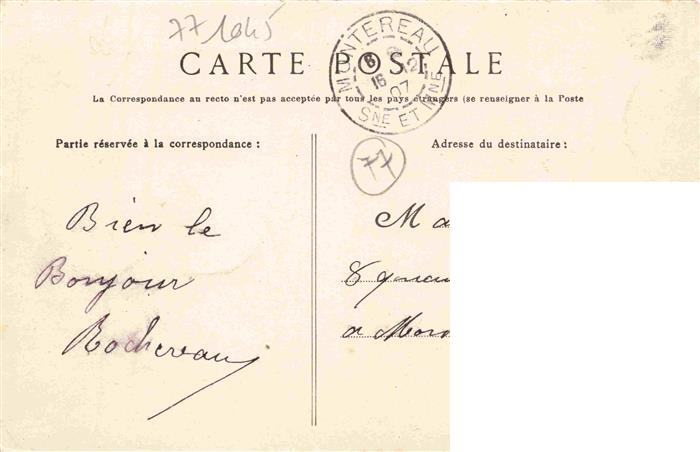 77 1045
CARTE POSTALE
MONTEREAU
16 12
07
SNE ET MNE
La Correspondance au recto n'est pas acceptée par tous les pays étrangers (se renseigner à la Poste
Partie réservée à la correspondance :
Adresse du destinataire :
77
Bien le
Bonjour
Rochereau
M
8 quai
a